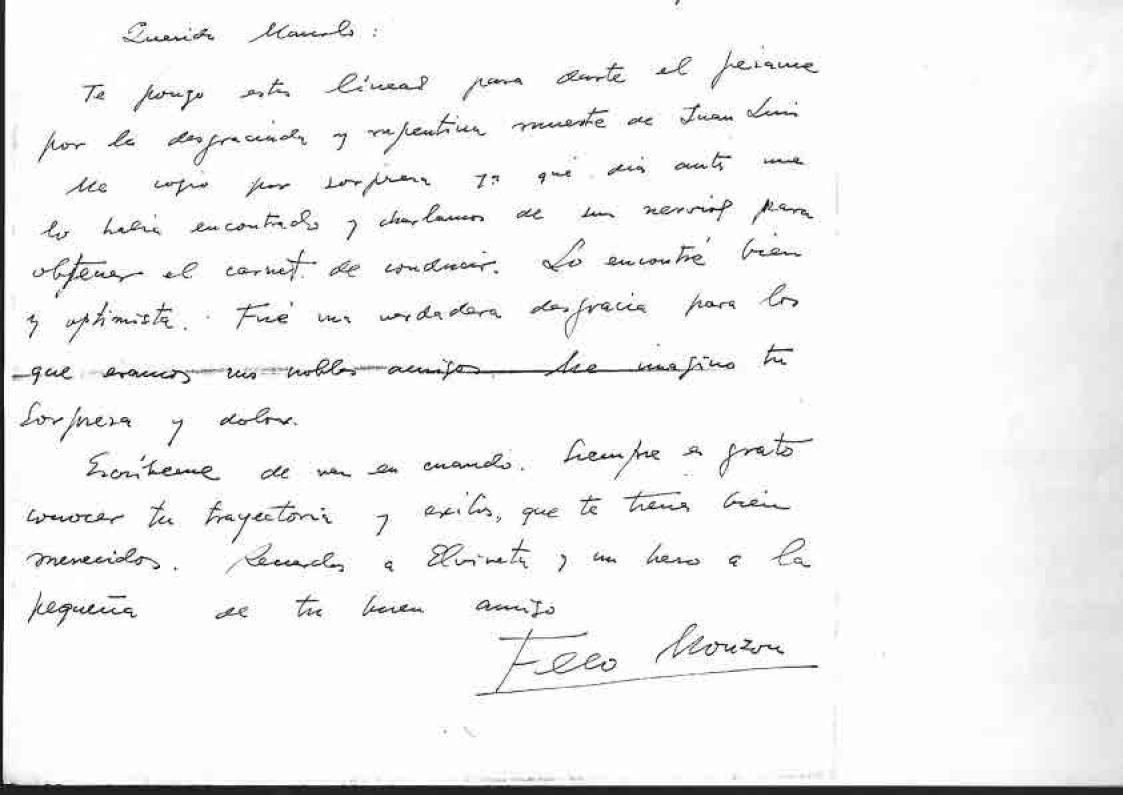 Querido Manolo:
Te pongo estas líneas para darte el pésame
por la desgraciada y repentina muerte de Juan Luis
Me cogio por sorpresa ya qué dias antes me
lo había encontrado y charlamos de un para
obtener el carnet de conducir. Lo encontré bien
y optimista. Fué una verdadera desgracia para los
que eramos sus nobles amigos Me imagino tu
sorpresa y dolor.
Escríbeme de vez en cuando. Siempre es grato
conocer tu trayectoria y exitos, que te tienes bien
merecidos. Recuerdos a Elvireta y un beso a la
pequeña de tu buen amigo
Felo Monzon